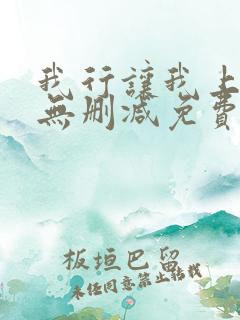 我行讓我上
無刪減免費
板垣巴留
未经同意禁止转载